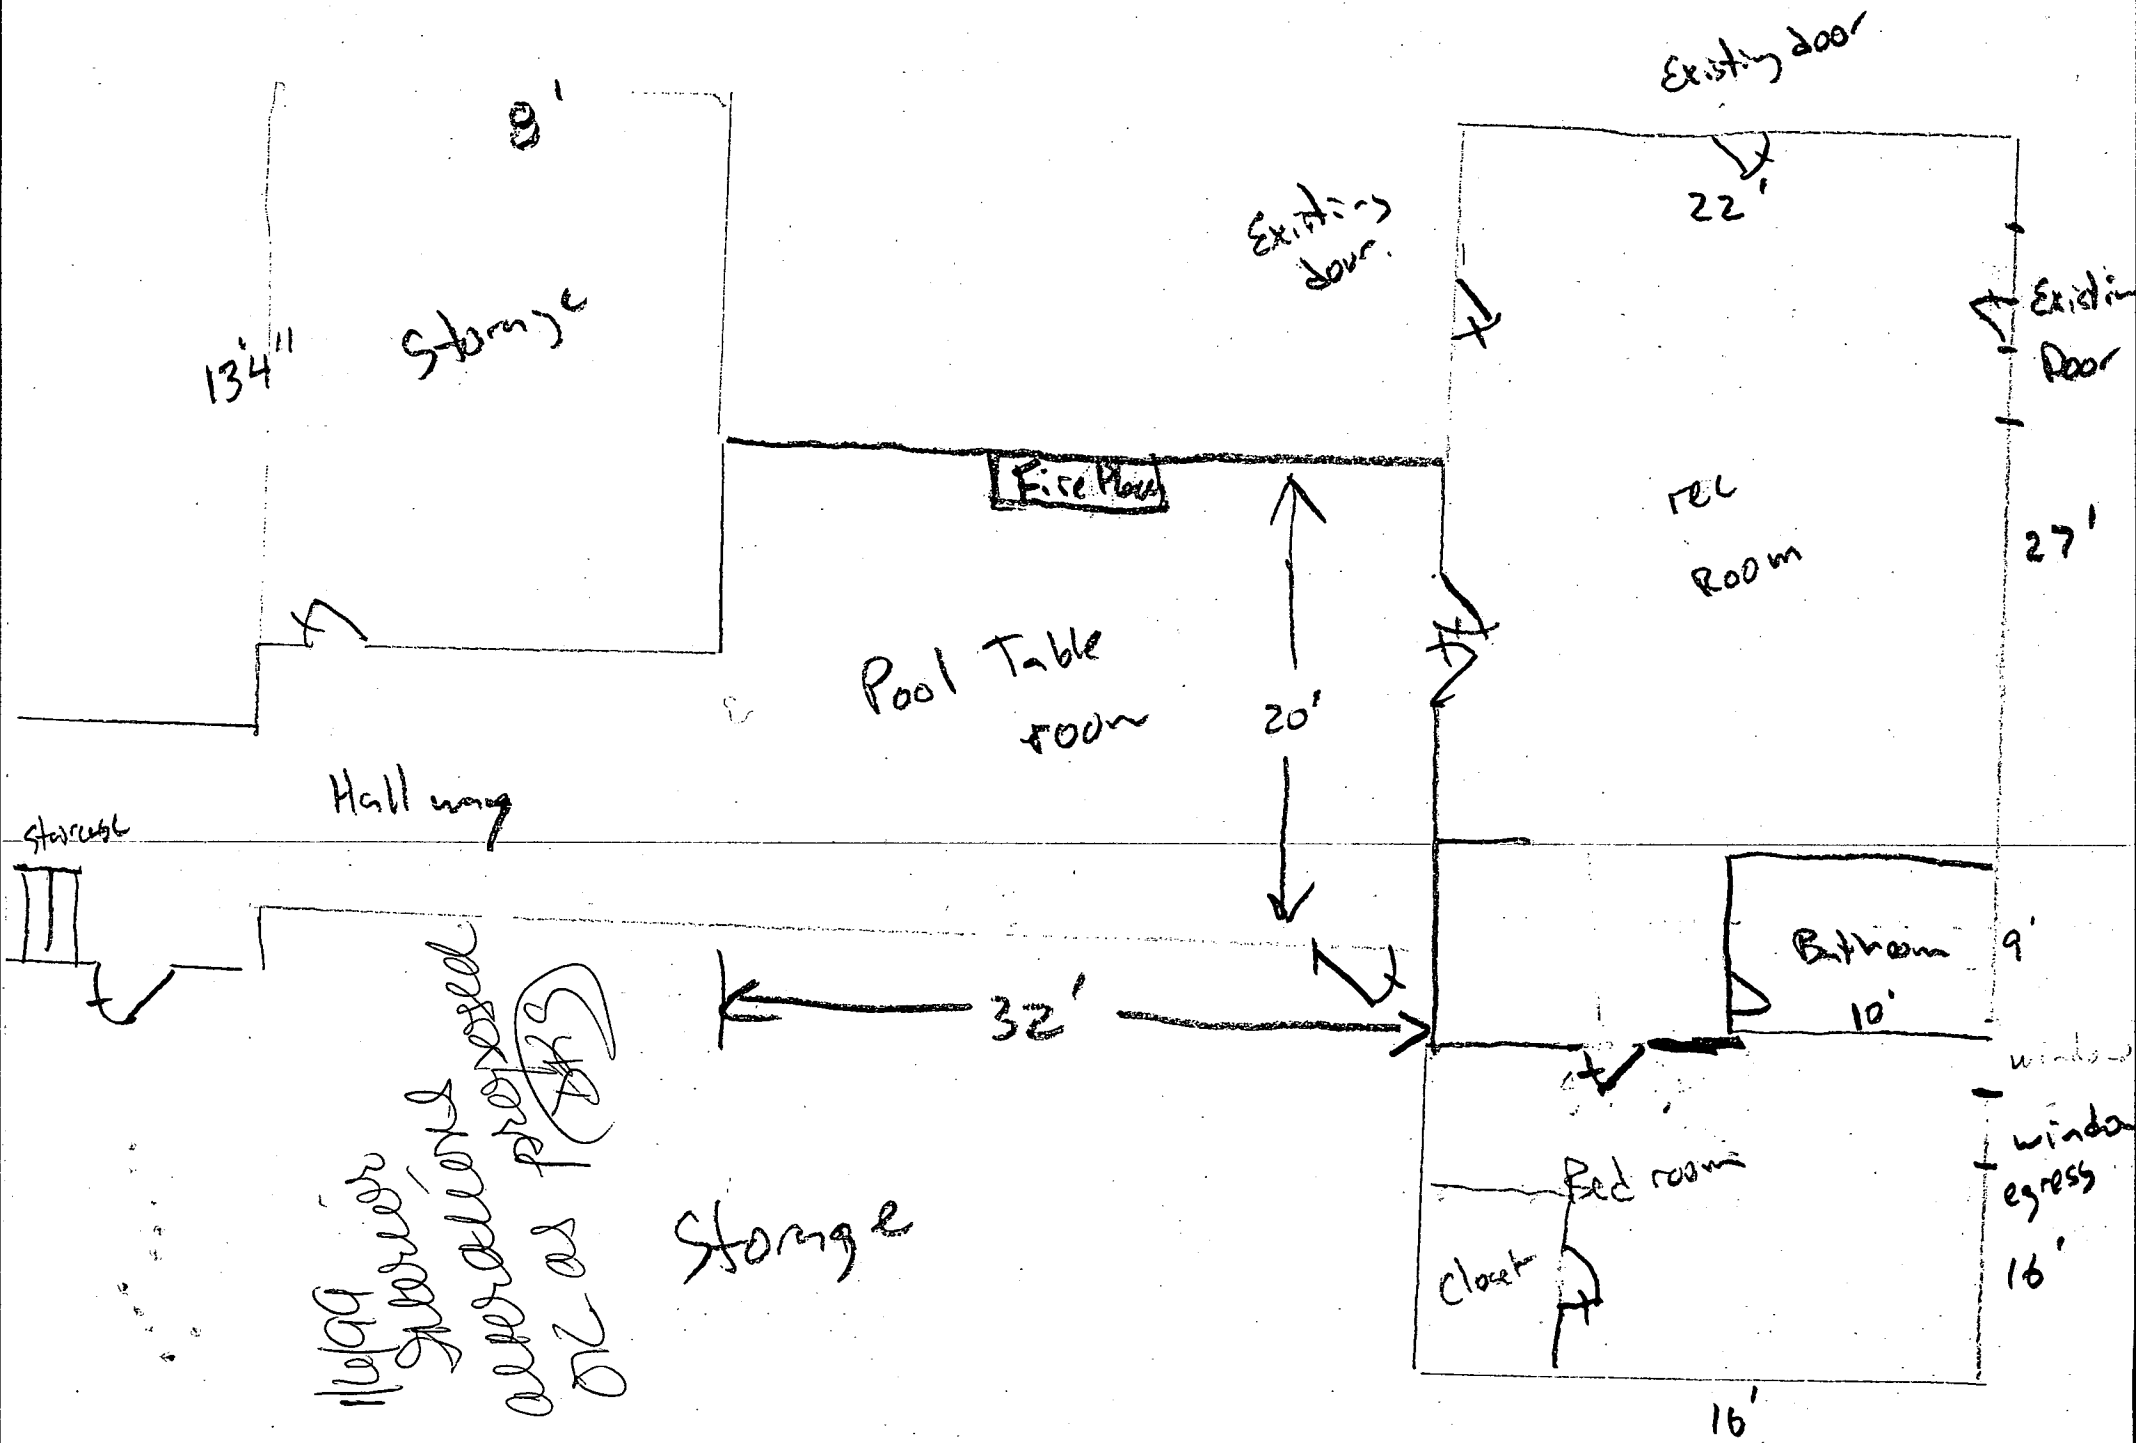 Existing door
8'
22'
Existing
door.
Existin
Door
13'4"
Storage
Fire Place
rec
Room
27'
Pool Table
room
20'
Hallway
staircase
Bathroom
9'
10'
32'
window
window
egress
16'
Bed room
Closet
16'
Storage
11/6/99
interior
alterations
OK as proposed